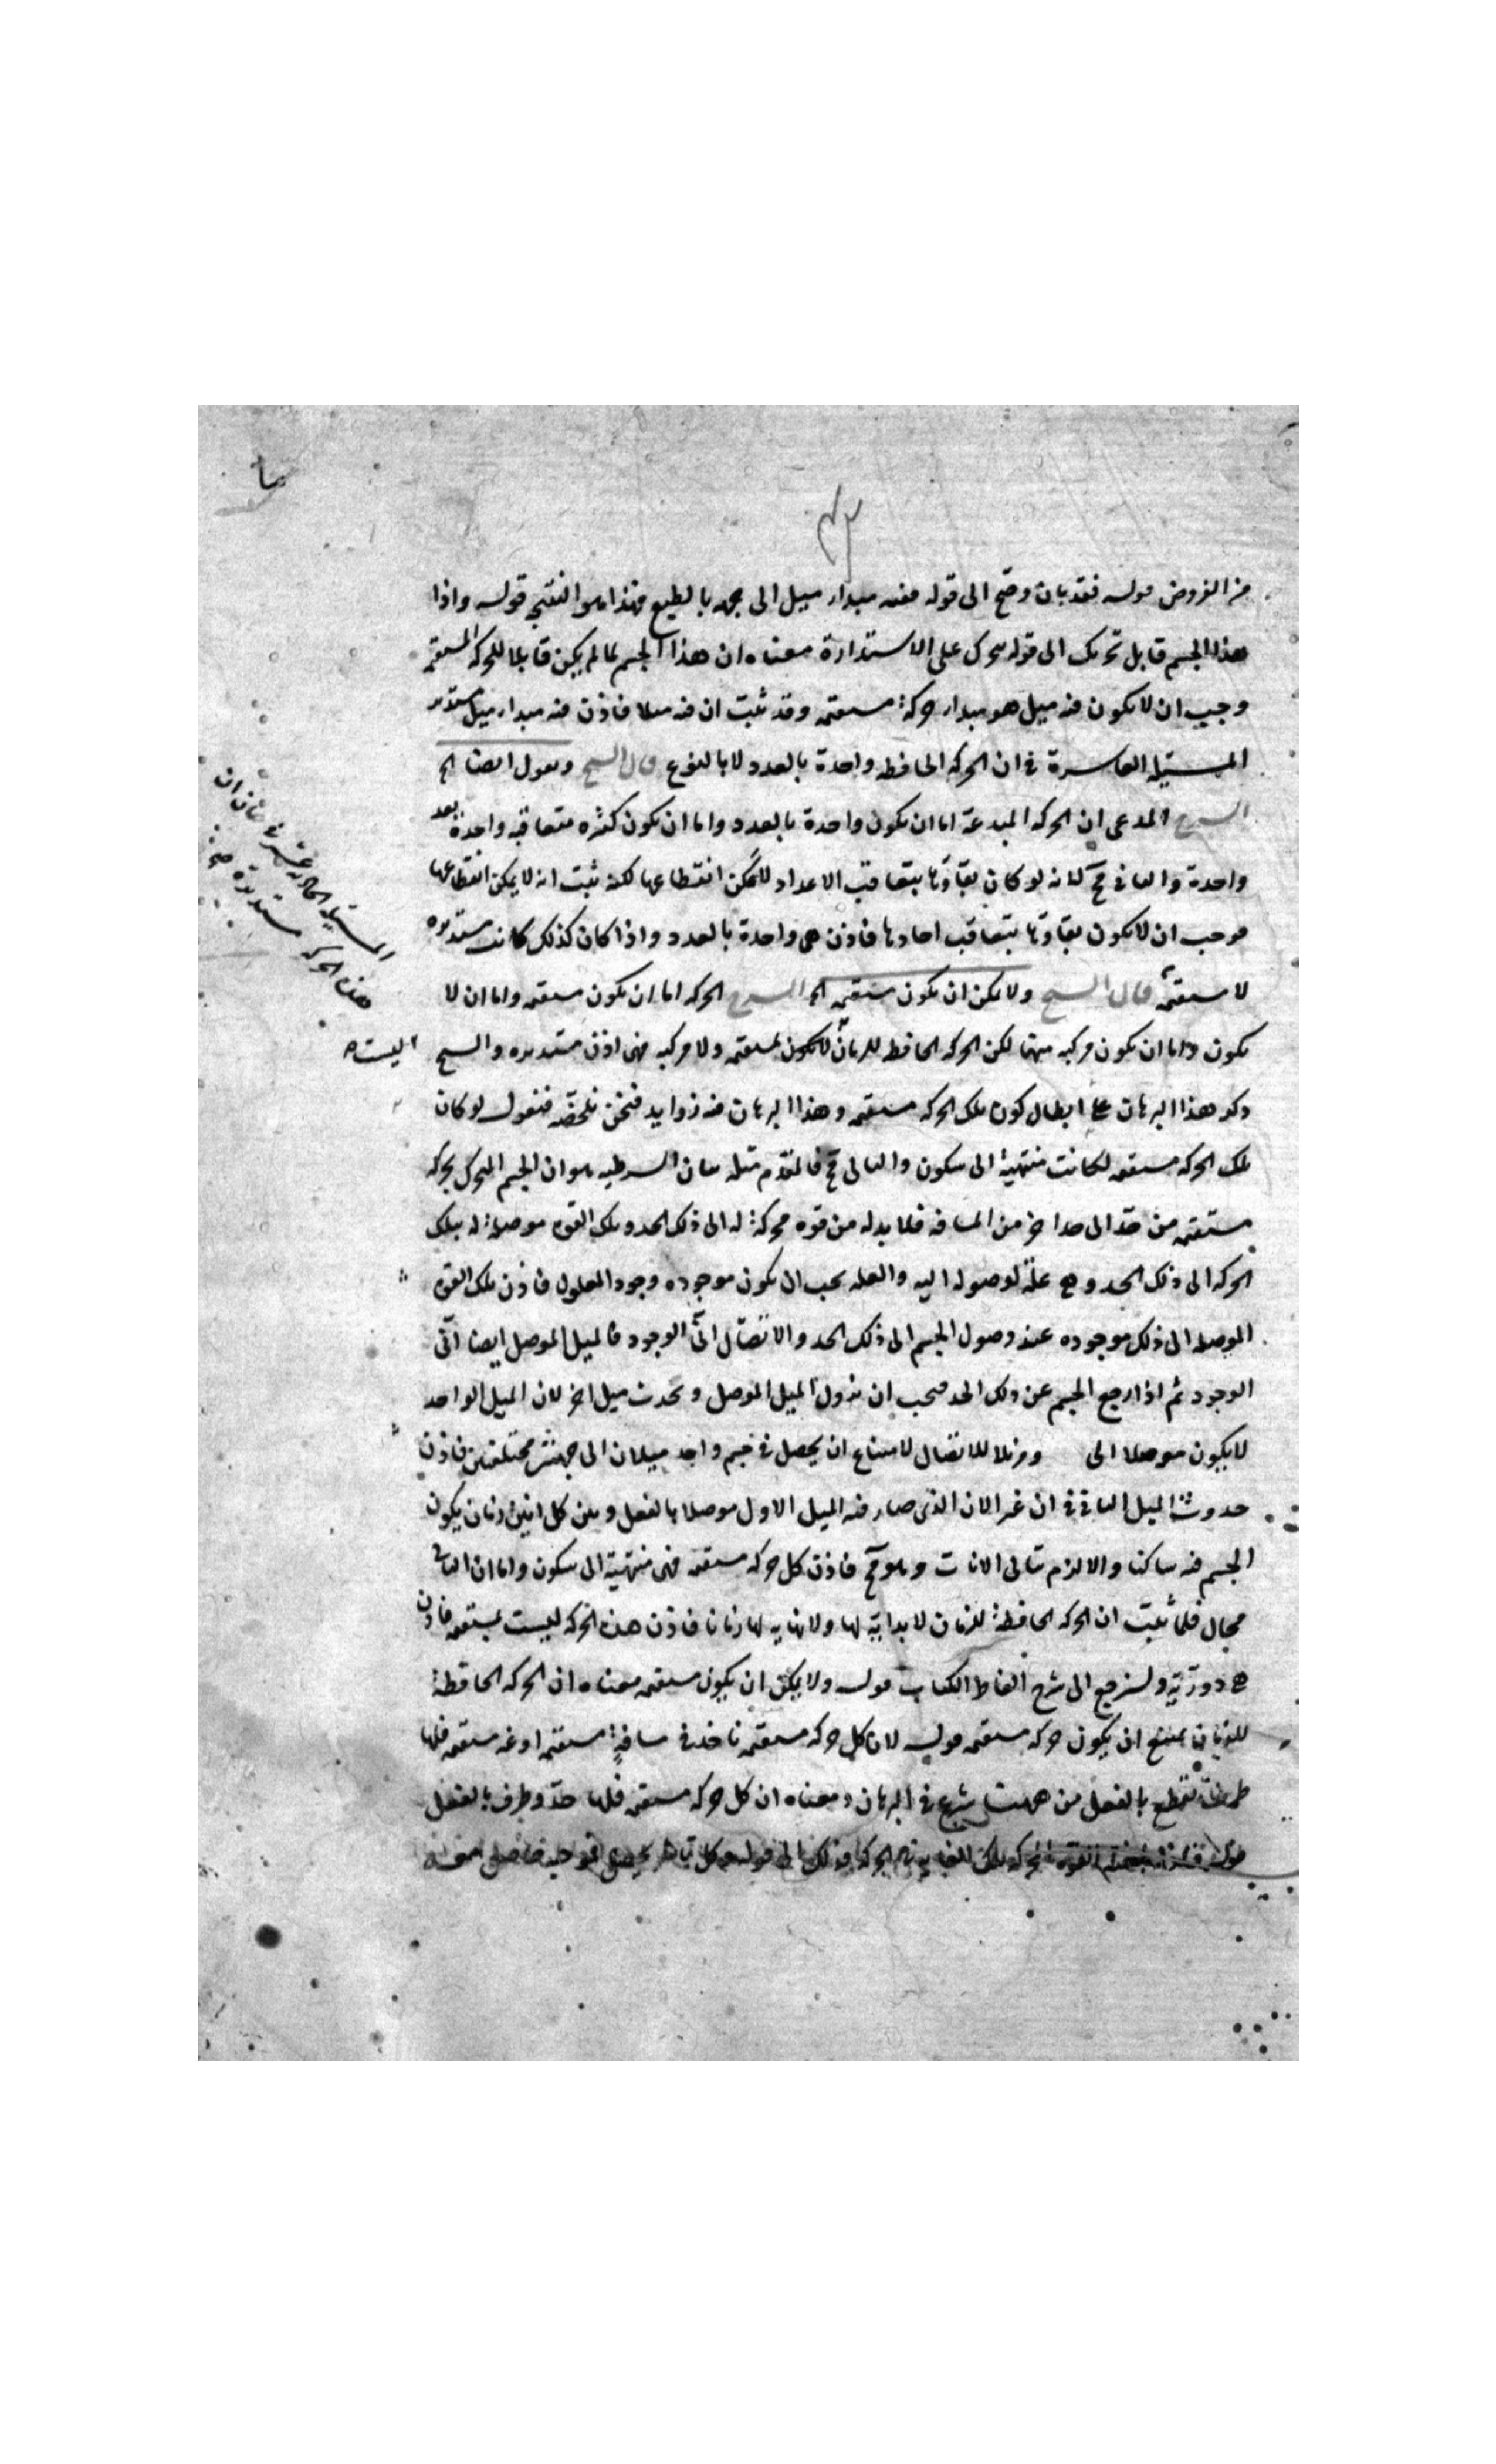 من الفروض قوله فقد بان وضح الى قوله ففيه مبدا ميل الى جهة بالطبع فهذا هو النتيجة قوله واذا
هذا الجسم قابل تحريك الى قوله يتحرك على الاستدارة معناه ان هذا الجسم لما لم يكن قابلا للحركة المستقيمة
وجب ان لا يكون فيه ميل هو مبدا حركة مستقيمة وقد ثبت ان فيه ميلا فاذن فيه مبدا ميل مستدير
المسئلة العاشرة في ان الحركة الحافظة واحدة بالعدد لا بالنوع قال الشيخ ونقول ايضا الخ
الشرح المدعى ان الحركة المبدعة اما ان تكون واحدة بالعدد واما ان تكون كثيرة متعاقبة واحدة بعد
واحدة والثاني مح لانه لو كان بقاؤها بتعاقب الاعداد لامكن انقطاعها لكنه ثبت انه لا يمكن انقطاعها
فوجب ان لا يكون بقاؤها بتعاقب احادها فاذن هي واحدة بالعدد واذا كان كذلك كانت مستديرة
لا مستقيمة قال الشيخ ولا يمكن ان يكون مستقيمة الخ الشرح الحركة اما ان يكون مستقيمة واما ان لا
يكون واما ان يكون مركبة منهما لكن الحركة الحافظة للزمان لا يكون بمستقيمة ولا مركبة فهي اذن مستديرة والشيخ
ذكر هذا البرهان على ابطال كون تلك الحركة مستقيمة وهذا البرهان فيه زوايد فنحن نلخصه فنقول لو كان
تلك الحركة مستقيمة لكانت منتهية الى سكون والتالي مح فالمقدم مثله بيان الشرطية هو ان الجسم المتحرك بحركة
مستقيمة من حد الى حد اخر من المسافة فلا بد له من قوة محركة له الى ذلك الحد وتلك القوة موصلة له بتلك
الحركة الى ذلك الحد وهي علة لوصوله اليه والعلة يجب ان يكون موجودة وجود المعلول فاذن تلك القوة
الموصلة الى ذلك موجودة عند وصول الجسم الى ذلك الحد والاتصال اني الوجود فالميل الموصل ايضا اني
الوجود ثم اذا رجع الجسم عن ذلك الحد فيجب ان يزول الميل الموصل ويحدث ميل اخر لان الميل الواحد
لا يكون موصلا الى ومزيلا للاتصال لامتناع ان يحصل في جسم واحد ميلان الى جهتين مختلفتين فاذن
حدوث الميل الثاني في ان غير الان الذي صار فيه الميل الاول موصلا بالفعل وبين كل انين زمان يكون
الجسم فيه ساكنا والا لزم تتالي الانات وهو مح فاذن كل حركة مستقيمة فهي منتهية الى سكون واما ان التالي
محال فلما ثبت ان الحركة الحافظة للزمان لا بداية لها ولا نهاية لها زمانا فاذن هذه الحركة ليست بمستقيمة فاذن
هي دورية ولنرجع الى شرح الفاظ الكتاب قوله ولا يمكن ان يكون مستقيمة معناه ان الحركة الحافظة
للزمان يمتنع ان يكون حركة مستقيمة قوله لان كل حركة مستقيمة تاخذ في مسافة مستقيمة او غير مستقيمة فلها
طرف تنقطع بالفعل من ههنا شرع في البرهان ومعناه ان كل حركة مستقيمة فلها حد وطرف بالفعل
المسئلة الحادية عشر في بيان ان
هذه الحركة مستديرة